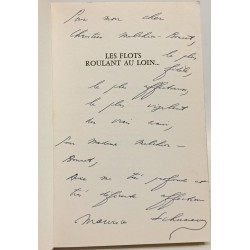 Pour mon cher
Christian Melchior-Bonnet,
LES FLOTS
ROULANT AU LOIN...
le plus
fidèle,
le plus affectueux,
le plus vigilant
des vrais amis,
pour Madame Melchior-
Bonnet,
avec ma très profonde et
très déférente affection
Maurice Schumann